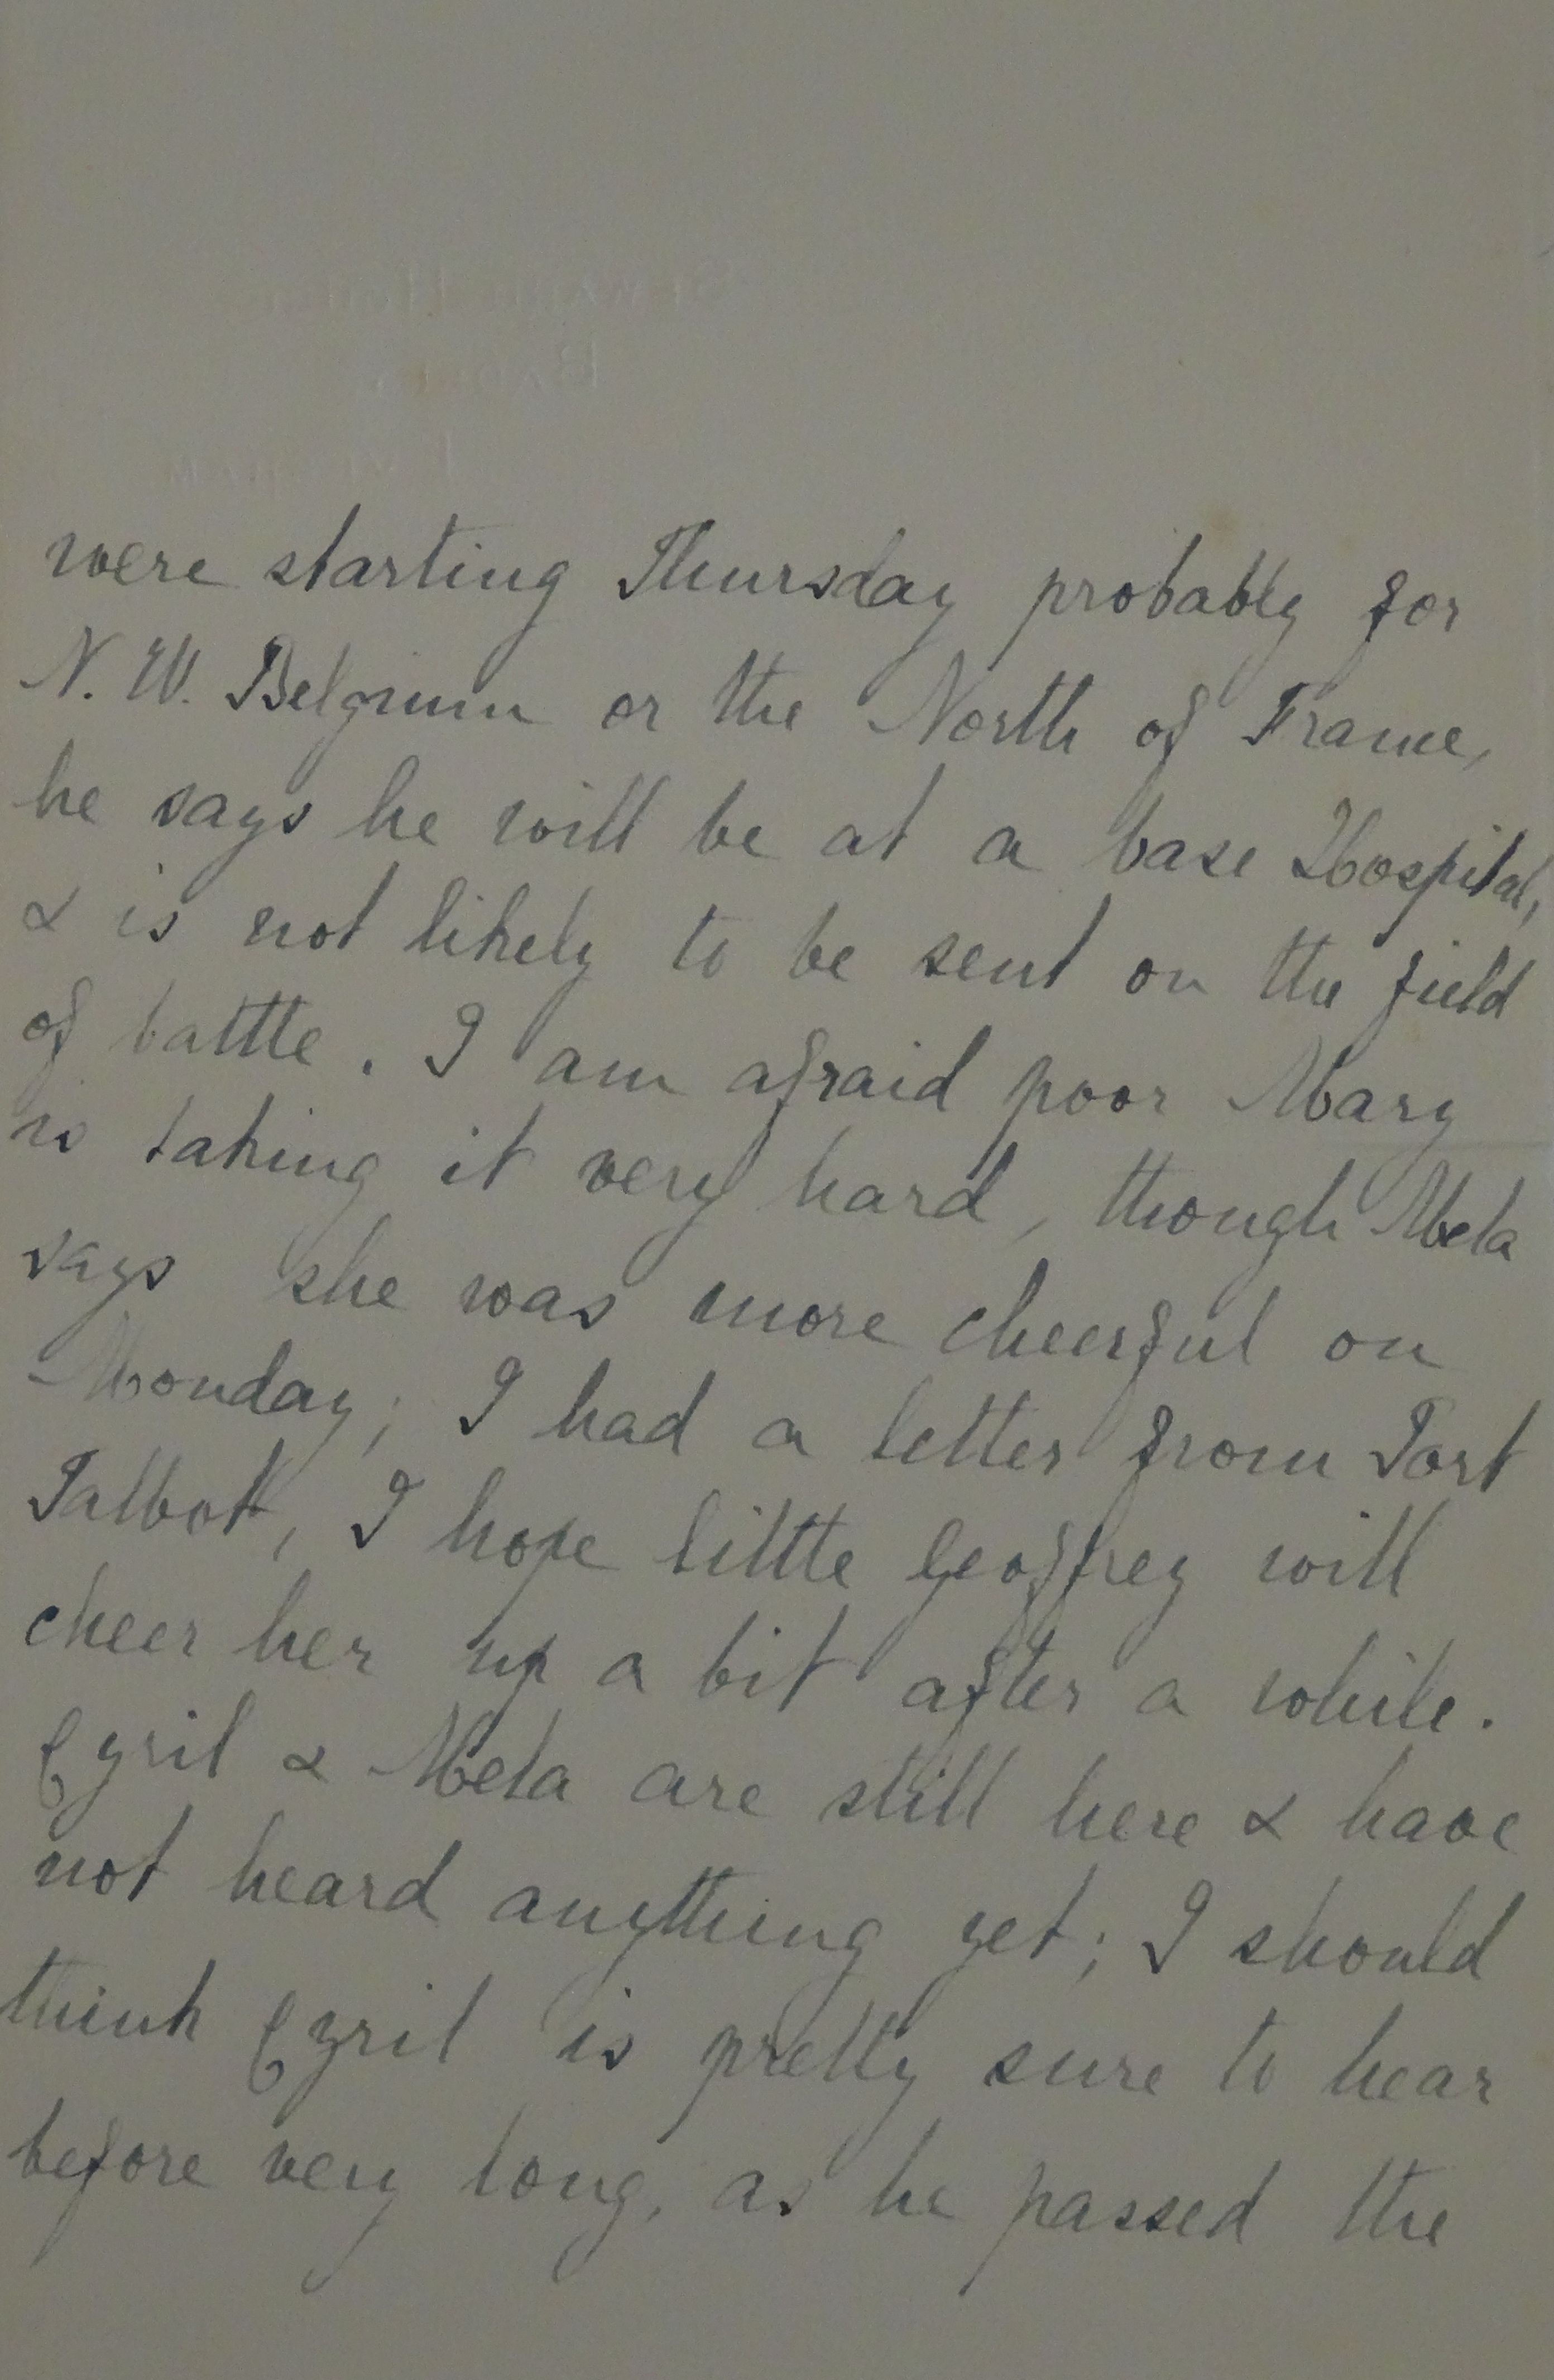 were starting Thursday probably for
N. W. Belgium or the North of France,
he says he will be at a base Hospital,
& is not likely to be sent on the field
of battle. I am afraid poor Mary
is taking it very hard, though Mela
says she was more cheerful on
Monday; I had a letter from Port
Talbot, I hope little Geoffrey will
cheer her up a bit after a while.
Cyril & Mela are still here & have
not heard anything yet; I should
think Cyril is pretty sure to hear
before very long, as he passed the